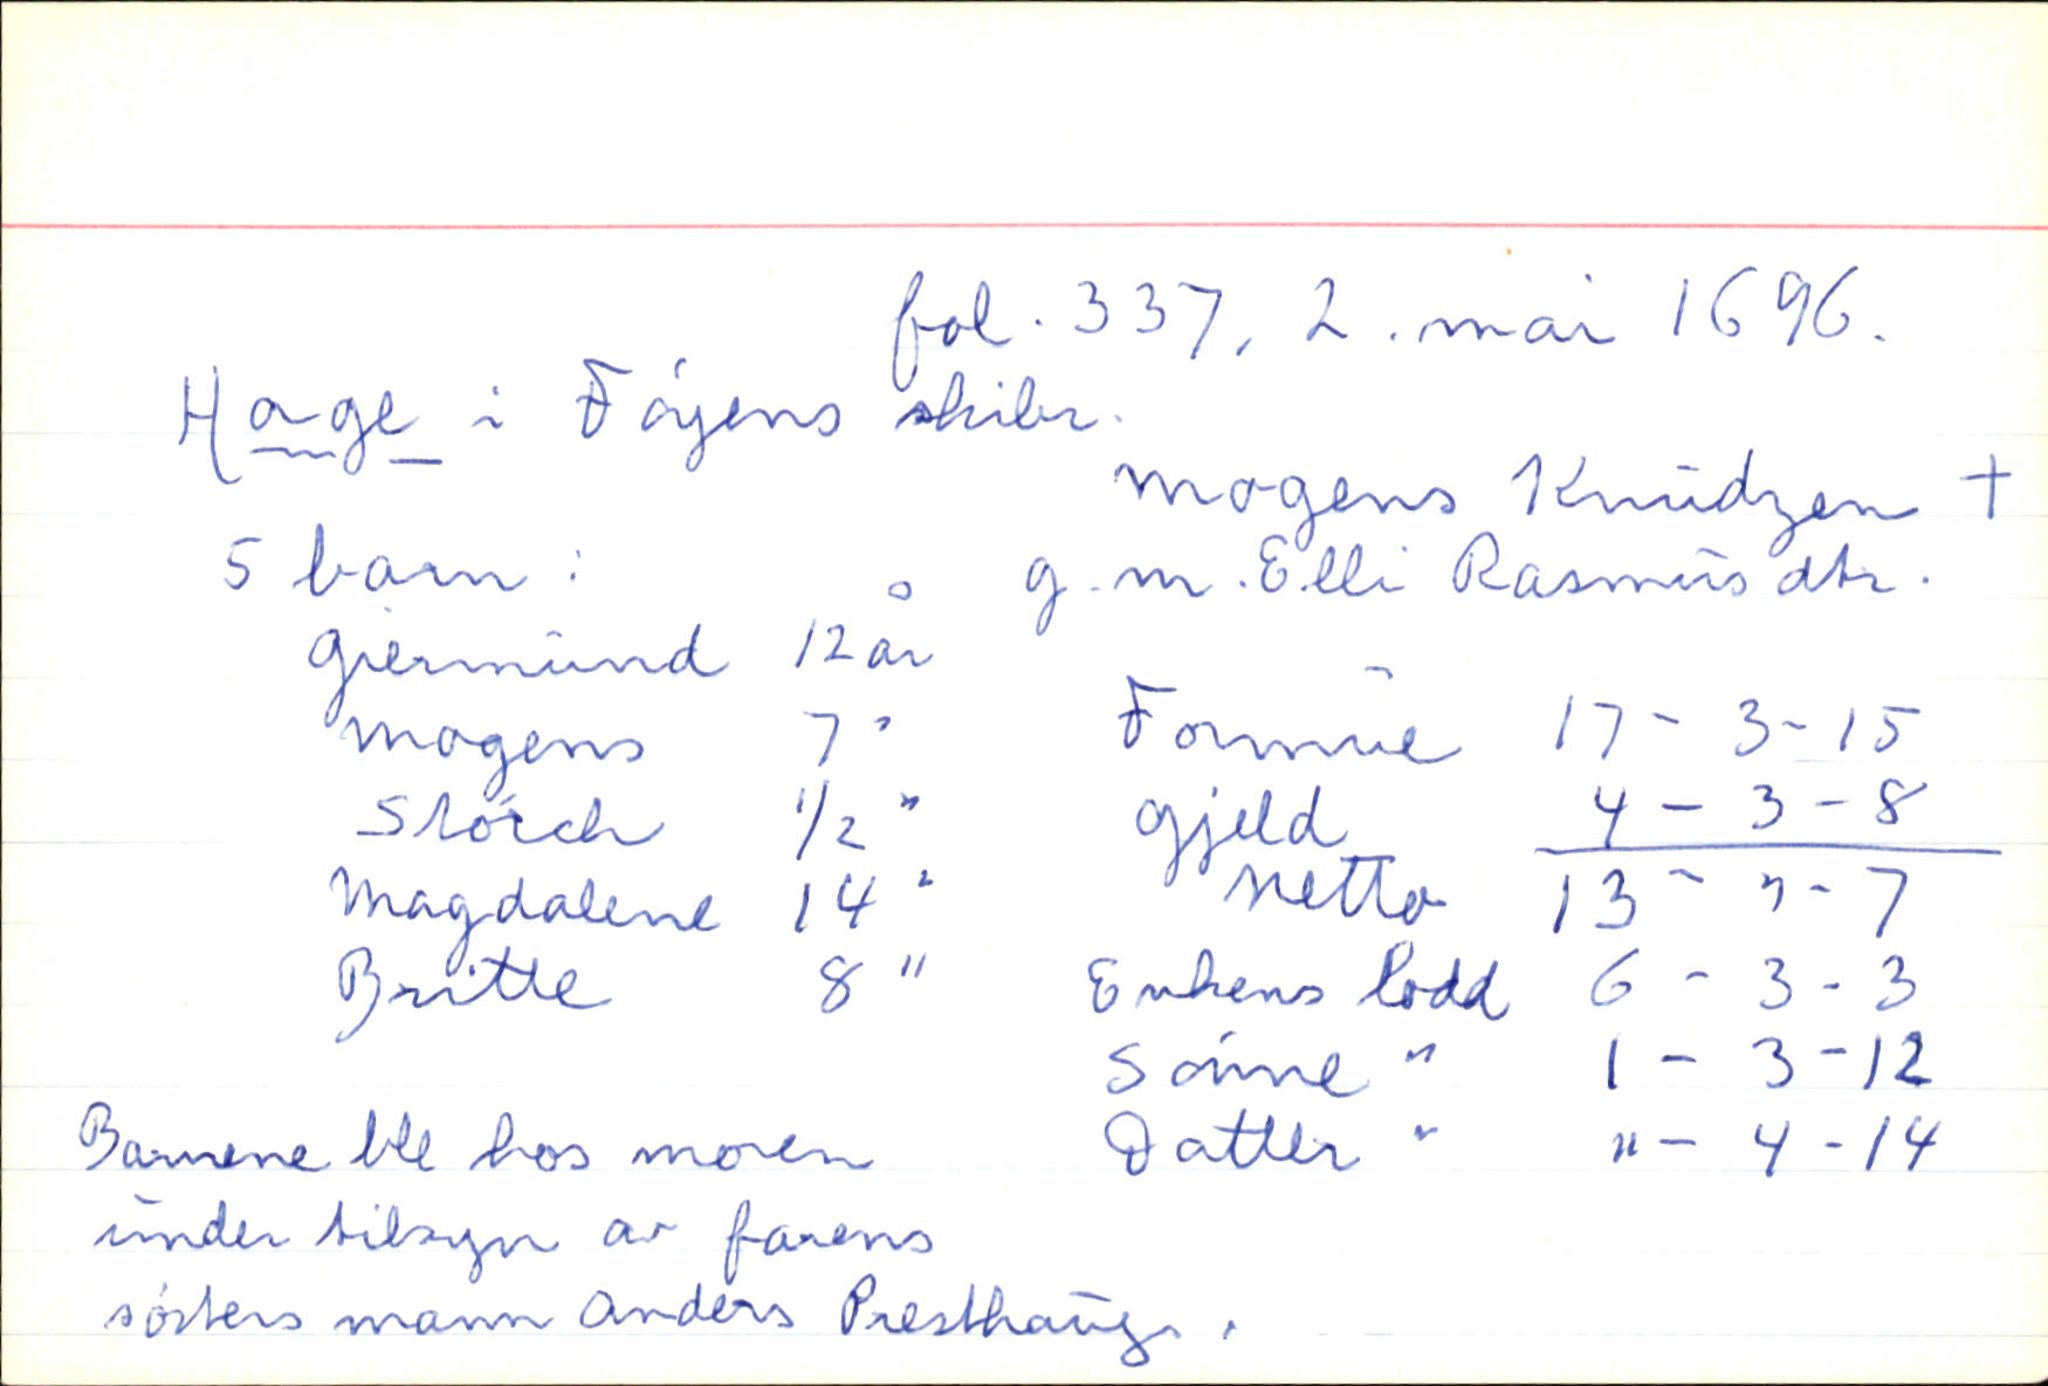 fol. 337, 2. mai 1696.
Hage i Föyens skibr.
Mogens Knudzen †
g.m. Elli Rasmusdtr.
5 barn:
Giermund 12 år
Mogens 7 "
Störch 1/2 "
Magdalene 14 "
Britte 8 "
Formue 17 - 3 - 15
Gjeld 4 - 3 - 8
Netto 13 - " - 7
Enkens lodd 6 - 3 - 3
Sönne " 1 - 3 - 12
Datter " " - 4 - 14
Barnene ble hos moren
under tilsyn av farens
sösters mann Anders Presthaug.